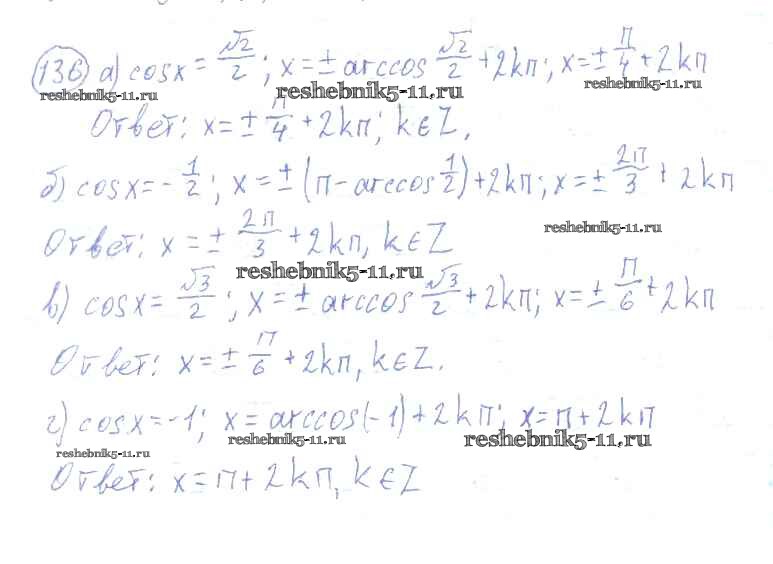 136) а) cosx = √2/2; x = ± arccos √2/2 + 2kπ; x = ± π/4 + 2kπ
reshebnik5-11.ru reshebnik5-11.ru reshebnik5-11.ru
Ответ: x = ± π/4 + 2kπ; k ∈ Z,
б) cosx = -1/2; x = ± (π - arccos 1/2) + 2kπ; x = ± 2π/3 + 2kπ
reshebnik5-11.ru
Ответ: x = ± 2π/3 + 2kπ, k ∈ Z
reshebnik5-11.ru
в) cosx = √3/2; x = ± arccos √3/2 + 2kπ; x = ± π/6 + 2kπ
Ответ: x = ± π/6 + 2kπ, k ∈ Z.
г) cosx = -1; x = arccos(-1) + 2kπ; x = π + 2kπ
reshebnik5-11.ru reshebnik5-11.ru
reshebnik5-11.ru
Ответ: x = π + 2kπ, k ∈ Z